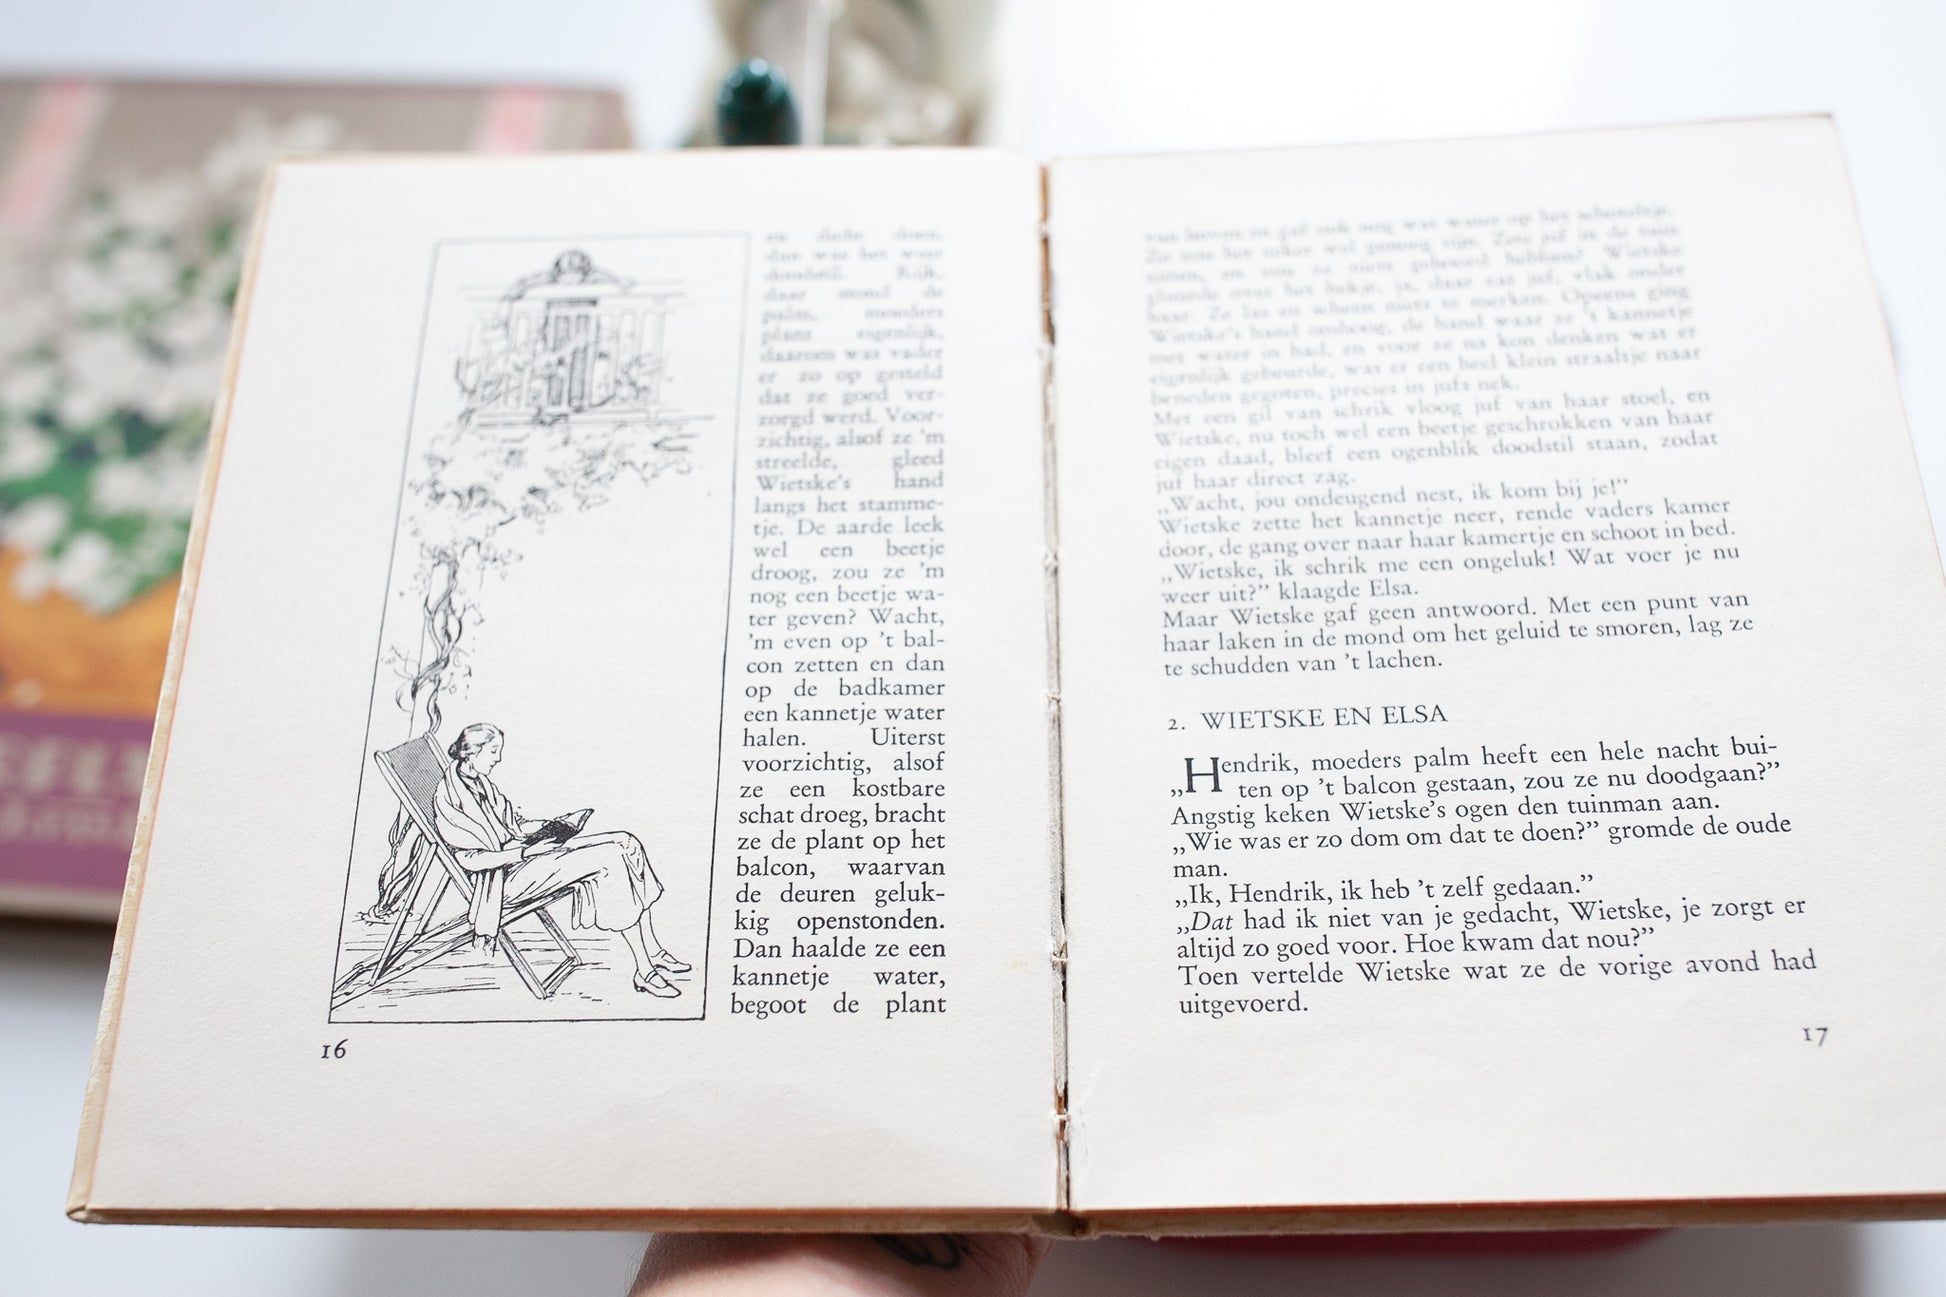 en dicht doen,
dan was het weer
doodstil. Kijk,
daar stond de
palm, moeders
plant eigenlijk,
daarom was vader
er zo op gesteld
dat ze goed ver-
zorgd werd. Voor-
zichtig, alsof ze 'm
streelde, gleed
Wietske's hand
langs het stamme-
tje. De aarde leek
wel een beetje
droog, zou ze 'm
nog een beetje wa-
ter geven? Wacht,
'm even op 't bal-
con zetten en dan
op de badkamer
een kannetje water
halen. Uiterst
voorzichtig, alsof
ze een kostbare
schat droeg, bracht
ze de plant op het
balcon, waarvan
de deuren geluk-
kig openstonden.
Dan haalde ze een
kannetje water,
begoot de plant
16
van boven en gaf ook nog wat water op het schoteltje.
Zo zou het zeker wel genoeg zijn. Zou juf in de tuin
zitten, en zou ze niets gehoord hebben? Wietske
gluurde over het hekje, ja, daar zat juf, vlak onder
haar. Ze las en scheen niets te merken. Opeens ging
Wietske's hand omhoog, de hand waar ze 't kannetje
met water in had, en voor ze na kon denken wat er
eigenlijk gebeurde, was er een heel klein straaltje naar
beneden gegoten, precies in jufs nek.
Met een gil van schrik vloog juf van haar stoel, en
Wietske, nu toch wel een beetje geschrokken van haar
eigen daad, bleef een ogenblik doodstil staan, zodat
juf haar direct zag.
„Wacht, jou ondeugend nest, ik kom bij je!”
Wietske zette het kannetje neer, rende vaders kamer
door, de gang over naar haar kamertje en schoot in bed.
„Wietske, ik schrik me een ongeluk! Wat voer je nu
weer uit?” klaagde Elsa.
Maar Wietske gaf geen antwoord. Met een punt van
haar laken in de mond om het geluid te smoren, lag ze
te schudden van 't lachen.
2. WIETSKE EN ELSA
„Hendrik, moeders palm heeft een hele nacht bui-
ten op 't balcon gestaan, zou ze nu doodgaan?”
Angstig keken Wietske's ogen den tuinman aan.
„Wie was er zo dom om dat te doen?” gromde de oude
man.
„Ik, Hendrik, ik heb 't zelf gedaan.”
„Dat had ik niet van je gedacht, Wietske, je zorgt er
altijd zo goed voor. Hoe kwam dat nou?”
Toen vertelde Wietske wat ze de vorige avond had
uitgevoerd.
17